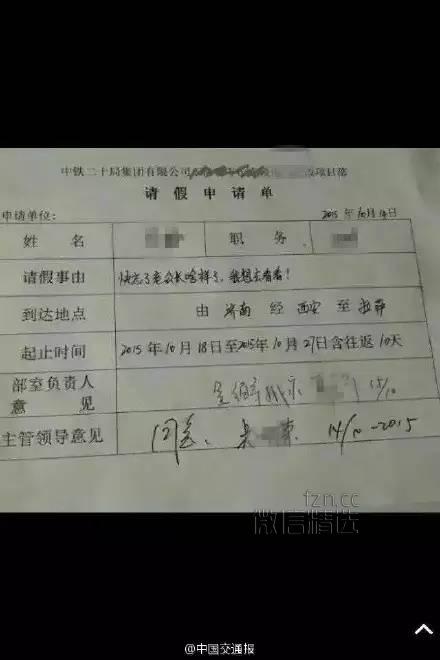 中铁二十局集团有限公司 项目部
请假申请单
申请单位: 2015年10月14日
姓名 职务
请假事由 快忘了老公长啥样了,我想去看看!
到达地点 由 济南 经 西安 至
起止时间 2015年10月18日至2015年10月27日含往返10天
部室负责人
意见 15/10
主管领导意见 同意、 14/10-2015
fzn.cc
微信精选
@中国交通报